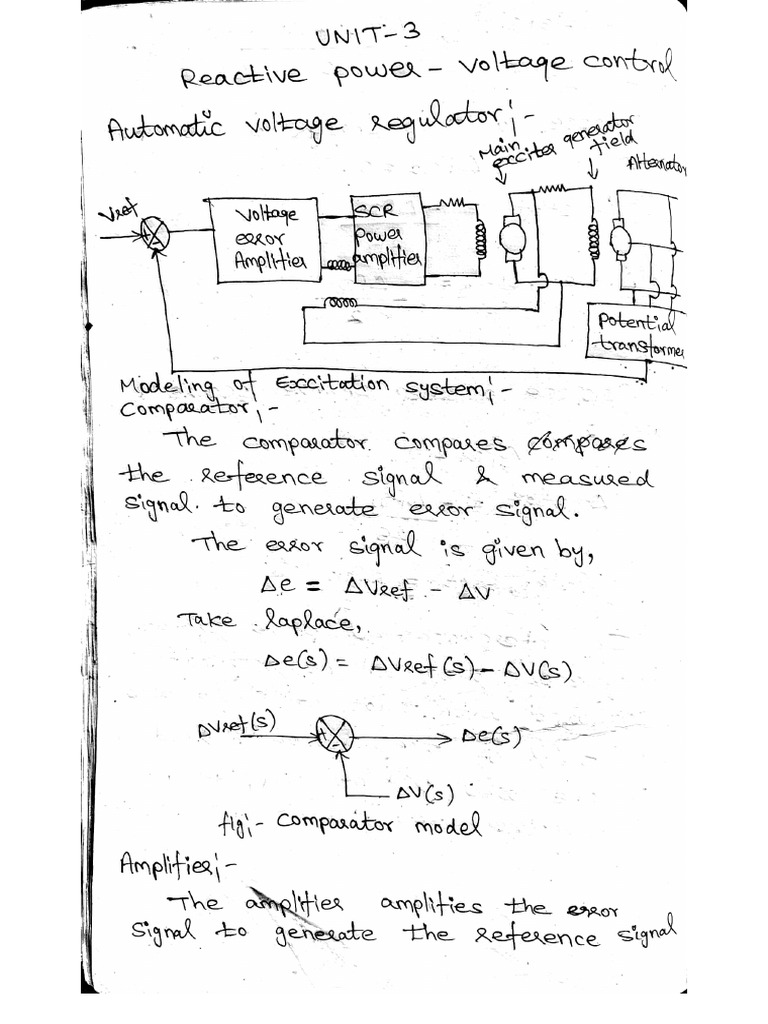 UNIT-3
Reactive power - voltage control
Automatic voltage regulator:-
Main exciter
generator field
Alternator
Vref
Voltage error Amplifier
SCR power amplifier
Potential transformer
Modeling of Excitation system:-
Comparator:-
The comparator compares compares
the reference signal & measured
signal. to generate error signal.
The error signal is given by,
Δe = ΔVref - ΔV
Take laplace,
Δe(s) = ΔVref(s) - ΔV(s)
ΔVref(s)
+
-
Δe(s)
ΔV(s)
fig:- comparator model
Amplifier:-
The amplifier amplifies the error
signal to generate the reference signal